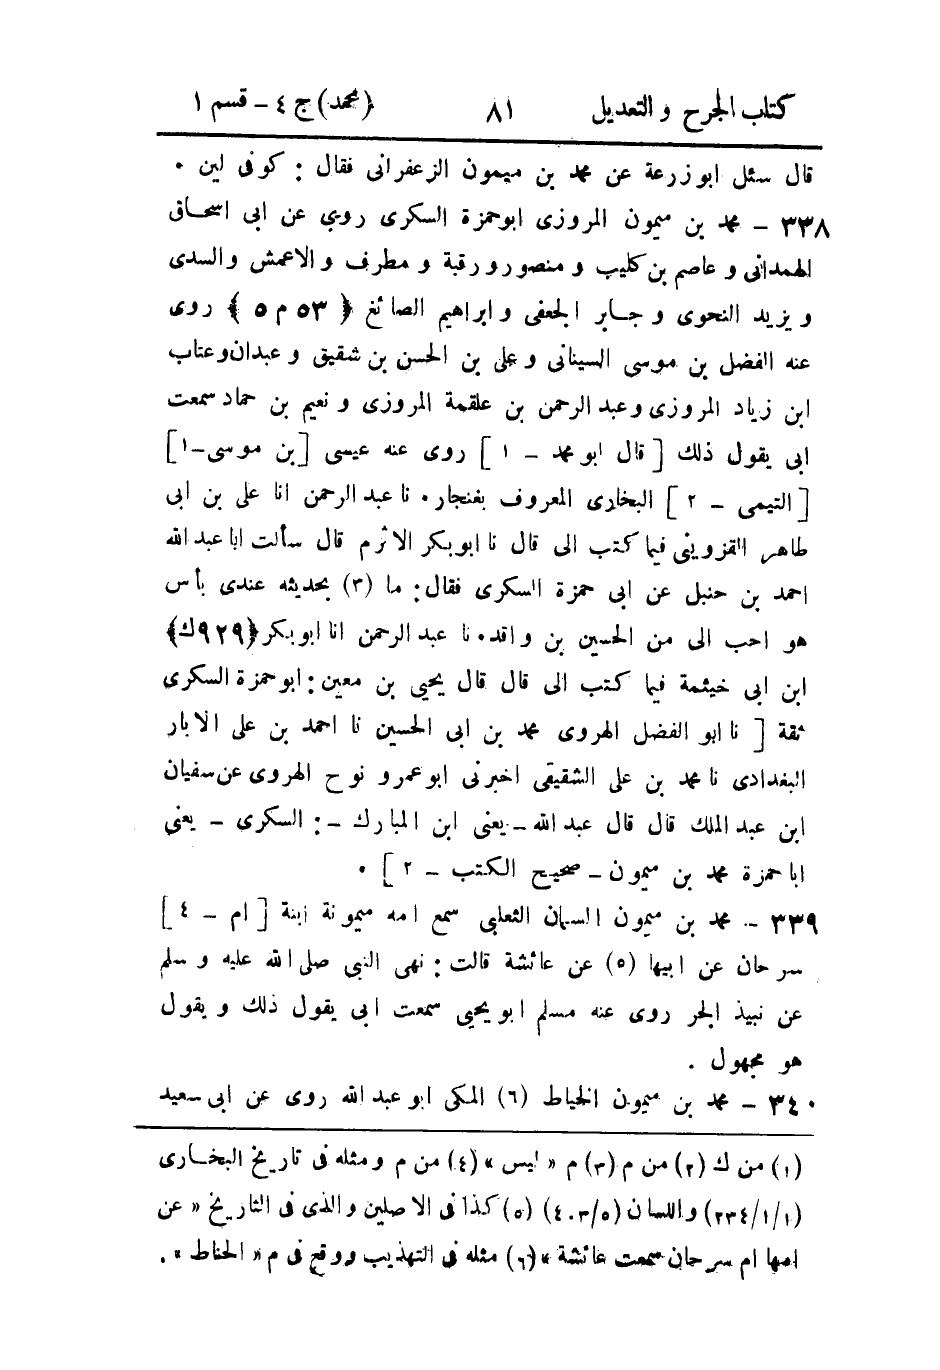 كتاب الجرح والتعديل ٨١ (محمد) ج ٤ - قسم ١
قال سئل ابو زرعة عن محمد بن ميمون الزعفرانى فقال : كوفى لين .
٣٣٨ - محمد بن ميمون المروزى ابو حمزة السكرى روى عن ابى اسحاق
الهمدانى و عاصم بن كليب و منصور و رقبة و مطرف و الاعمش والسدى
و يزيد النحوى و جابر الجعفى و ابراهيم الصائغ ﴿ ٥٣ م ٥ ﴾ روى
عنه الفضل بن موسى السينانى و على بن الحسن بن شقيق و عبدان وعتاب
ابن زياد المروزى وعبد الرحمن بن علقمة المروزى و نعيم بن حماد سمعت
ابى يقول ذلك [ قال ابو محمد - ١ ] روى عنه عيسى [ بن موسى - ١ ]
[ التيمى - ٢ ] البخارى المعروف بغنجار . نا عبد الرحمن انا على بن ابى
طاهر القزوينى فيما كتب الى قال نا ابو بكر الاثرم قال سألت ابا عبد الله
احمد بن حنبل عن ابى حمزة السكرى فقال : ما (٣) بحديثه عندى بأس
هو احب الى من الحسين بن واقد . نا عبد الرحمن انا ابو بكر ﴿ ٩٢٩ ك ﴾
ابن ابى خيثمة فيما كتب الى قال قال يحيى بن معين : ابو حمزة السكرى
ثقة [ نا ابو الفضل الهروى محمد بن ابى الحسين نا احمد بن على الابار
البغدادى نا محمد بن على الشقيقى اخبرنى ابو عمرو نوح الهروى عن سفيان
ابن عبد الملك قال قال عبد الله - يعنى ابن المبارك - : السكرى - يعنى
ابا حمزة محمد بن ميمون - صحيح الكتب - ٢ ] .
٣٣٩ - محمد بن ميمون السمان الثعلبى سمع امه ميمونة ابنة [ ام - ٤ ]
سرحان عن ابيها (٥) عن عائشة قالت : نهى النبى صلى الله عليه و سلم
عن نبيذ الجر روى عنه مسلم ابو يحيى سمعت ابى يقول ذلك و يقول
هو مجهول .
٣٤٠ - محمد بن ميمون الخياط (٦) المكى ابو عبد الله روى عن ابى سعيد
(١) من ك (٢) من م (٣) م « ليس » (٤) من م و مثله فى تاريخ البخارى
(٢٣٤/١/١) واللسان (٤٠٣/٥) (٥) كذا فى الاصلين والذى فى التاريخ « عن
امها ام سرحان سمعت عائشة » (٦) مثله فى التهذيب ووقع فى م « الحناط » .